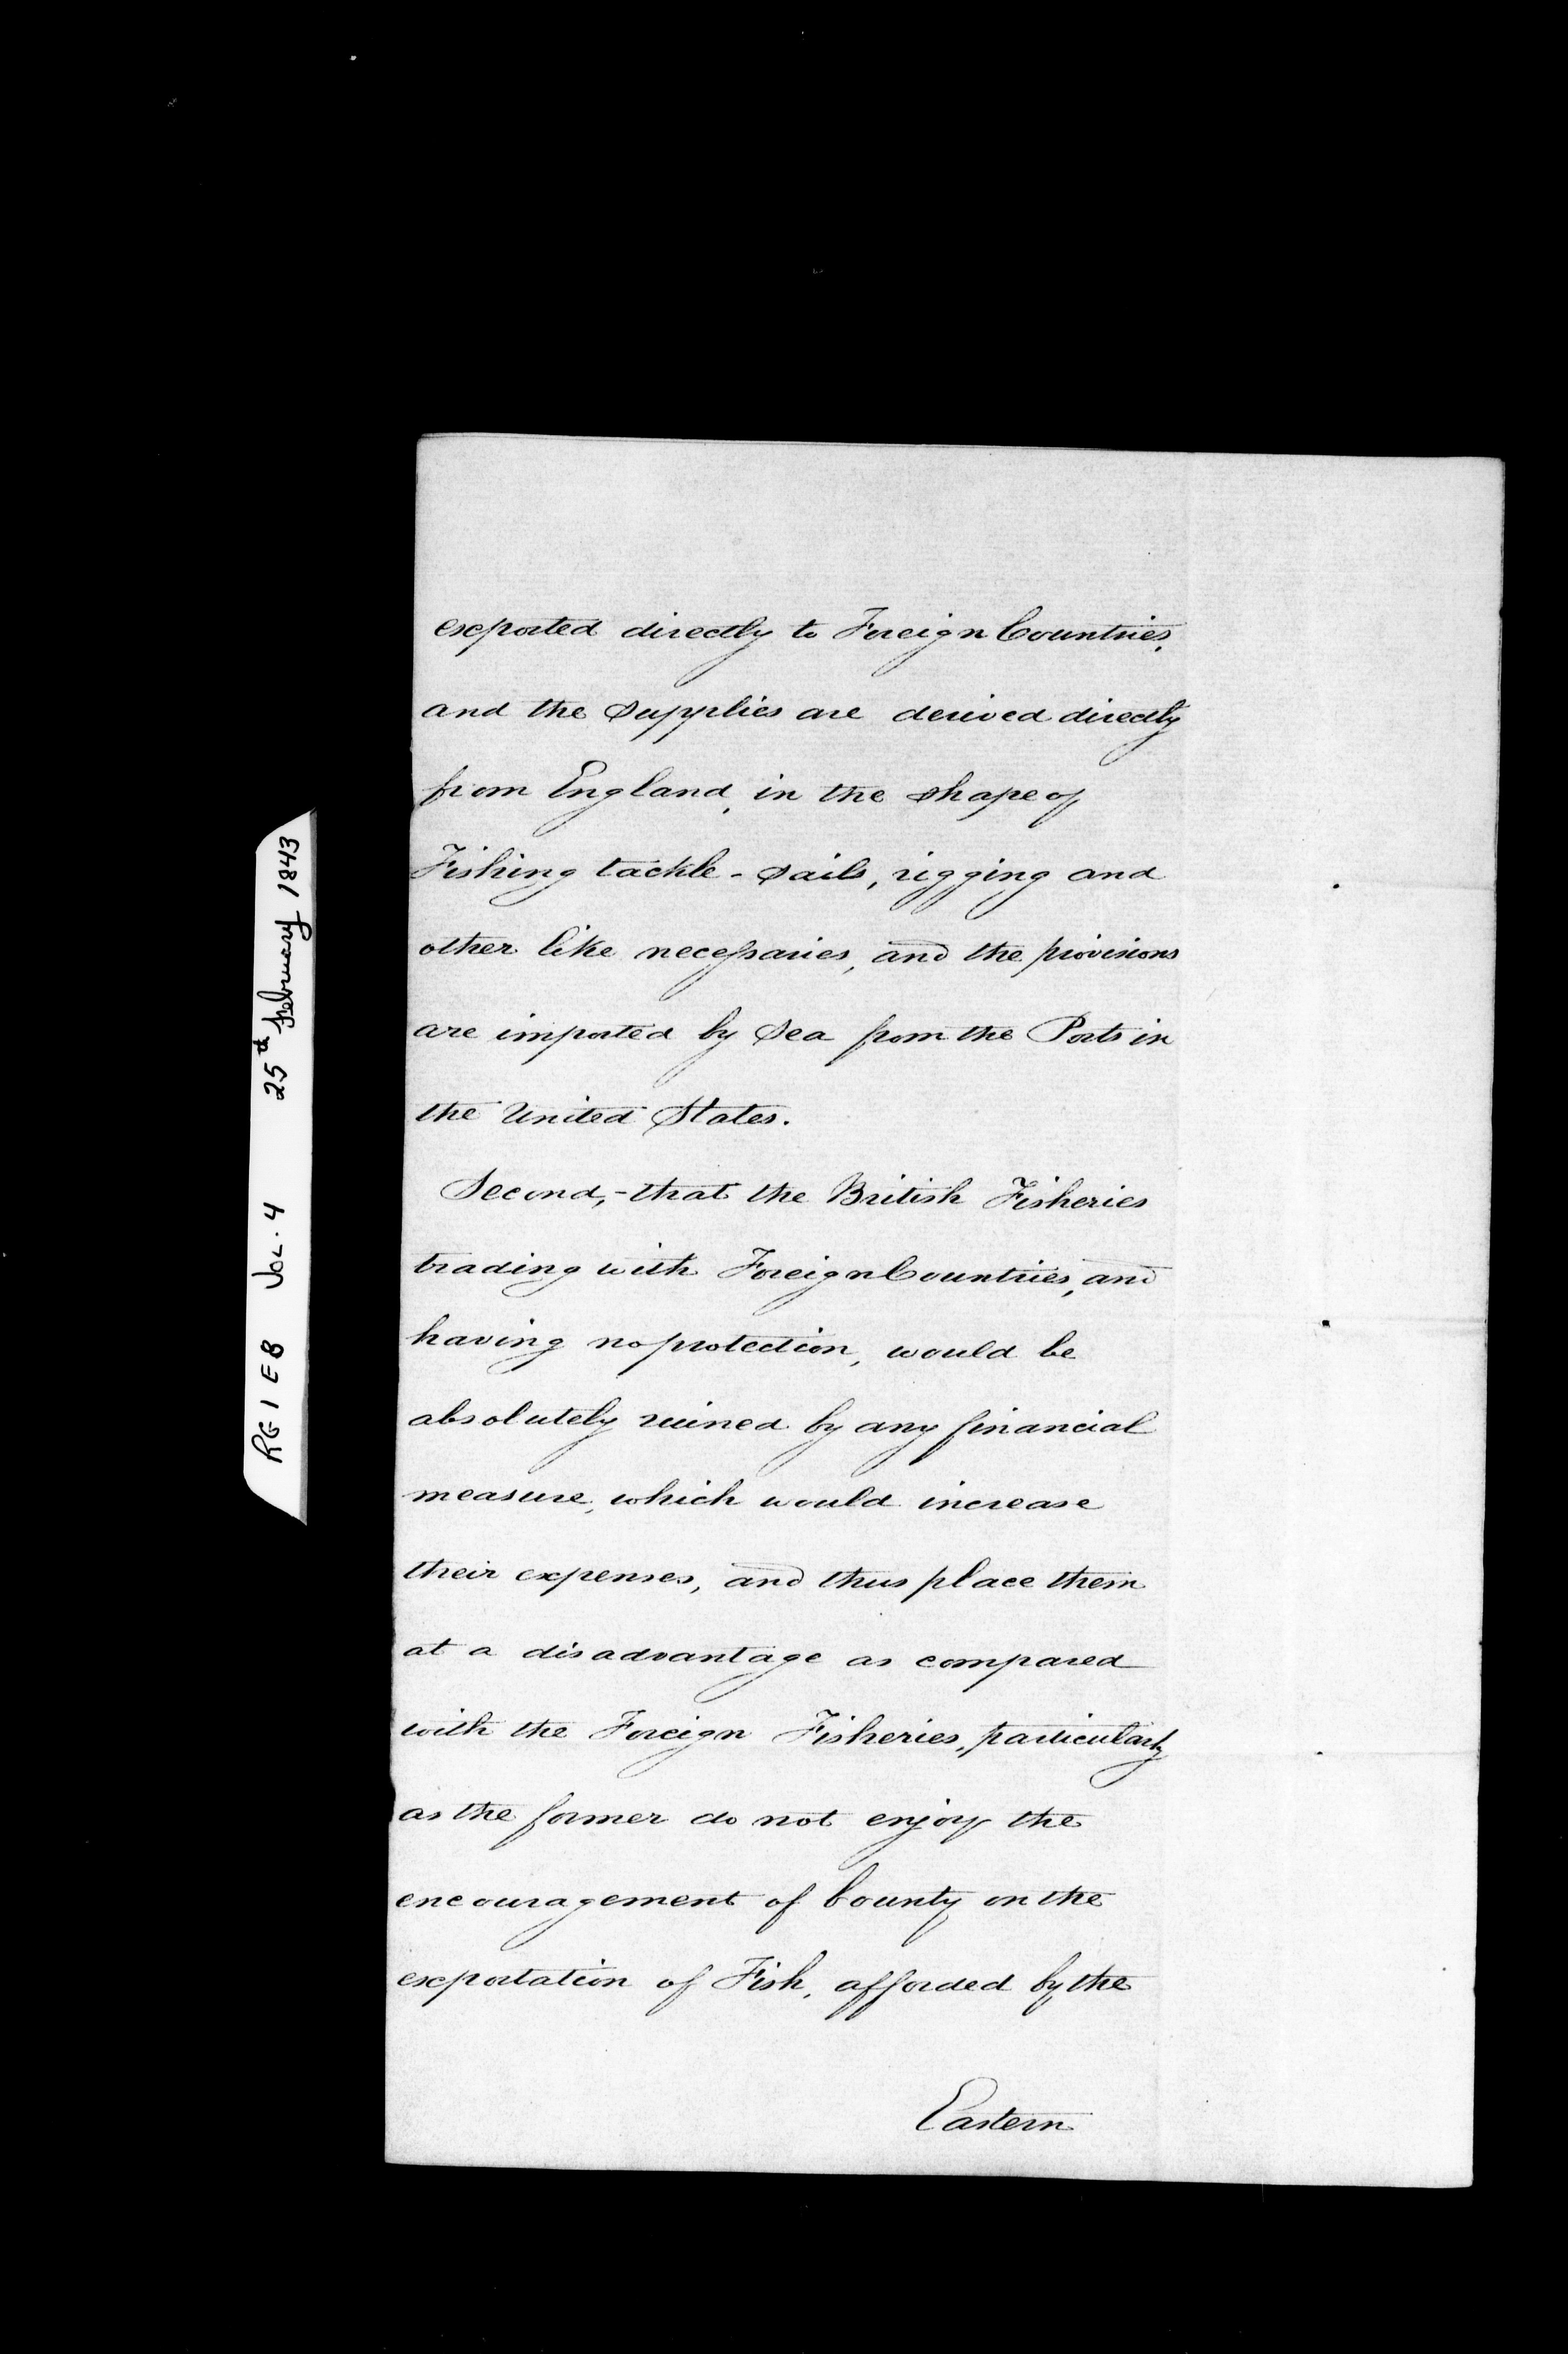 RG 1 E 8 Vol. 4 25th February 1843
exported directly to Foreign Countries,
and the Supplies are derived directly
from England, in the shape of
Fishing tackle - sails, rigging and
other like necessaries, and the provisions
are imported by Sea from the Ports in
the United States.
Second,- that the British Fisheries
trading with Foreign Countries, and
having no protection, would be
absolutely ruined by any financial
measure, which would increase
their expenses, and thus place them
at a disadvantage as compared
with the Foreign Fisheries, particularly
as the former do not enjoy the
encouragement of bounty on the
exportation of Fish, afforded by the
Eastern